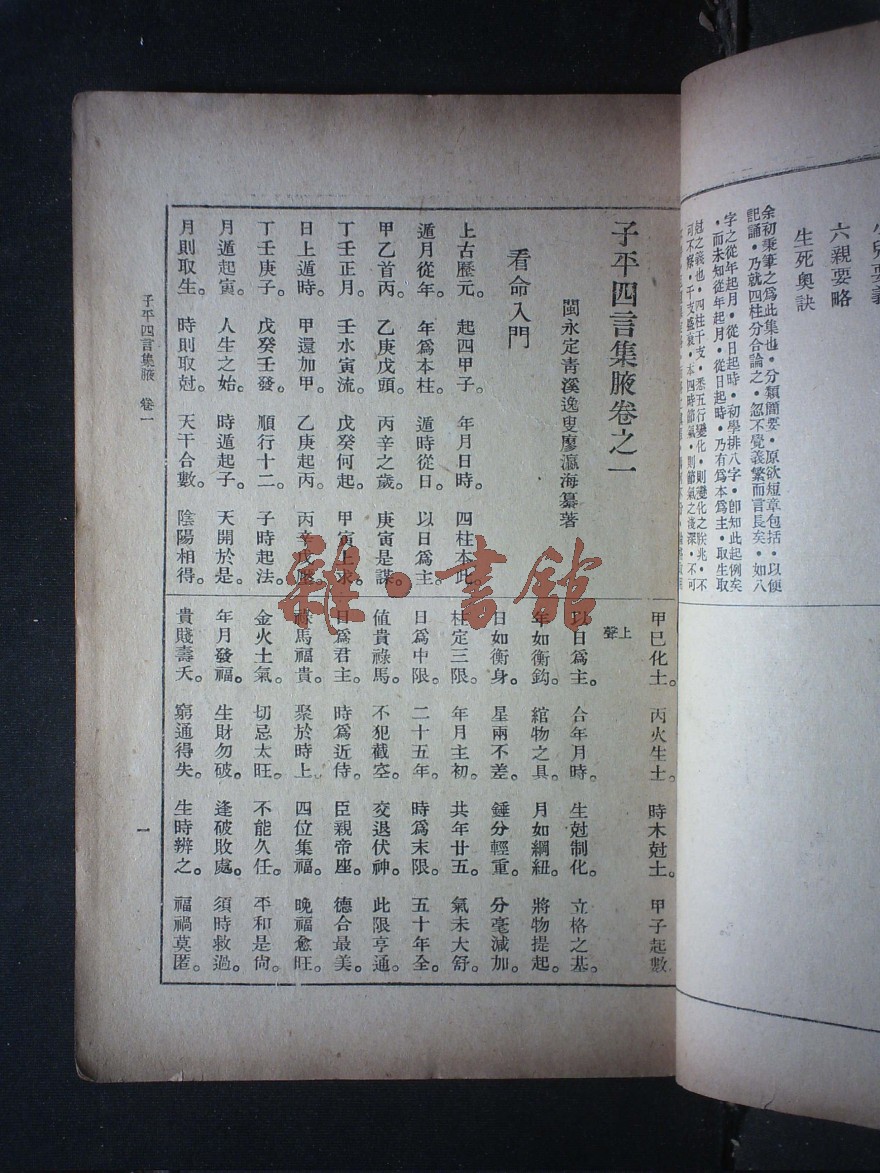 六親要略
生死奧訣
余初秉筆之爲此集也·分類簡要·原欲短章包括·以便
記誦·乃就四柱分合論之·忽不覺義繁而言長矣·如八
字之從年起月·從日起時·初學排八字·卽知此起例矣
·而未知從年起月·從日起時·乃有爲本爲主·取生取
尅之義也·四柱干支·悉五行變化·則變化之朕兆·不
可不察·干支盛衰·本四時節氣·則節氣之淺深·不可
子平四言集腋卷之一
閩永定靑溪逸叟廖瀛海纂著
看命入門
上古歷元。 起四甲子。 年月日時。 四柱本此。
遁月從年。 年爲本柱。 遁時從日。 以日爲主。
甲乙首丙。 乙庚戊頭。 丙辛之歲。 庚寅是謀。
丁壬正月。 壬水寅流。 戊癸何起。 甲寅上求。
日上遁時。 甲還加甲。 乙庚起丙。 丙辛戊應。
丁壬庚子。 戊癸壬發。 順行十二。 子時起法。
月遁起寅。 人生之始。 時遁起子。 天開於是。
月則取生。 時則取尅。 天干合數。 陰陽相得。
甲巳化土。 丙火生土 時木尅土。 甲子起數
上聲
以日爲主。 合年月時。 生尅制化。 立格之基。
年如衡鈎。 綰物之具。 月如綱紐。 將物提起。
日如衡身。 星兩不差。 錘分輕重。 分毫減加。
柱定三限。 年月主初。 共年廿五。 氣未大舒。
日爲中限。 二十五年。 時爲末限。 五十年全。
値貴祿馬。 不犯截空。 交退伏神。 此限亨通。
日爲君主。 時爲近侍。 臣親帝座。 德合最美。
祿馬福貴。 聚於時上。 四位集福。 晚福愈旺。
金火土氣。 切忌太旺。 不能久任。 平和是尙。
年月發福。 生財勿破。 逢破敗處。 須時救過。
貴賤壽夭。 窮通得失。 生時辨之。 福禍莫匿。
子平四言集腋 卷一
一
雜·書館